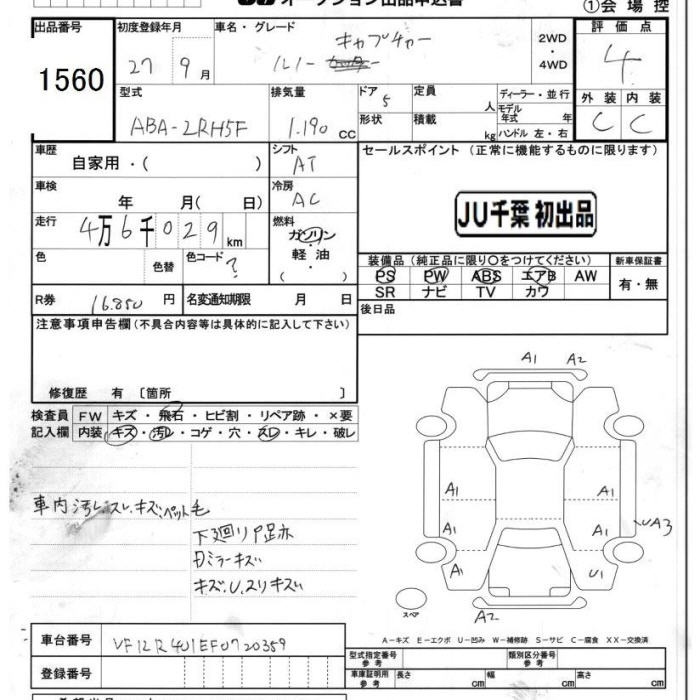 オークション出品申込書
①会場控
出品番号
初度登録年月
車名・グレード
評価点
1560
27 9月
ルノー キャプチャー
2WD
・
4WD
4
型式
排気量
ドア
定員
ディーラー・並行
外装 内装
ABA-2RH5F
1.190 cc
5
人
モデル年式 年
C C
形状
積載
kg
ハンドル 左・右
車歴
シフト
セールスポイント (正常に機能するものに限ります)
自家用・( )
AT
車検
冷房
年 月( 日)
AC
JU千葉 初出品
走行
4万6千029km
燃料
ガソリン
・
軽油
( ・ )
色
色替
色コード
?
装備品 (純正品に限り○をつけてください)
新車保証書
PS PW ABS エアB AW
SR ナビ TV カワ
有・無
R券
16.850円
名変通知期限
月 日
後日品
注意事項申告欄 (不具合内容等は具体的に記入して下さい)
修復歴 有 〔箇所 〕
検査員
FW
キズ・飛石・ヒビ割・リペア跡・×要
記入欄
内装
キズ・汚レ・コゲ・穴・スレ・キレ・破レ
A1 A2
A1 A1
A1 A1 UA3
A1 U1
A2
スペア
車内汚レスレキズ、ペット毛
下廻りP足赤
キズ、U、スリキズ
A-キズ E-エクボ U-凹み W-補修跡 S-サビ C-腐食 XX-交換済
車台番号
VF12R401EF0720359
登録番号
型式指定番号
参考
類別区分番号
参考
車庫証明用
参考
長さ
cm
幅
cm
高さ
cm